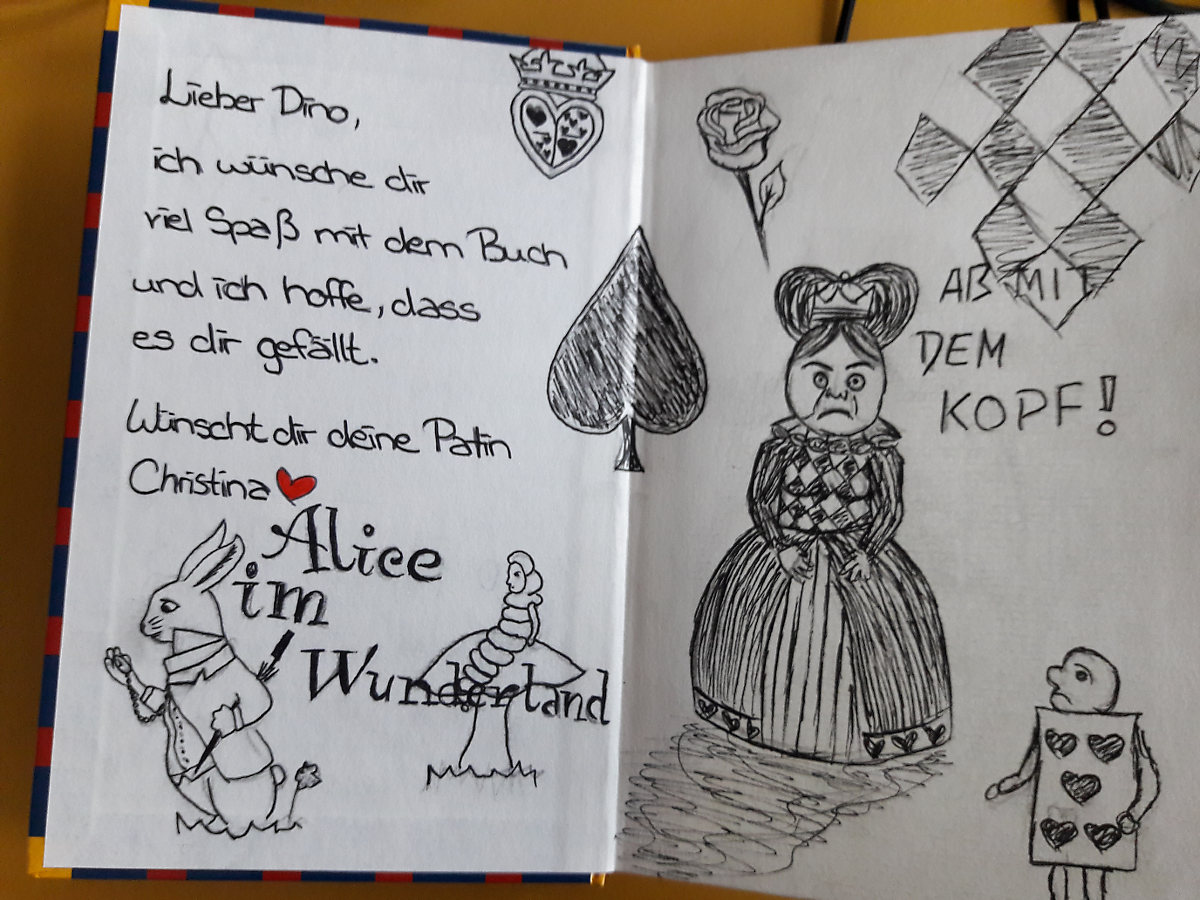 Lieber Dino,
ich wünsche dir
viel Spaß mit dem Buch
und ich hoffe, dass
es dir gefällt.
Wünscht dir deine Patin
Christina
Alice
im
Wunderland
AB MIT
DEM
KOPF!